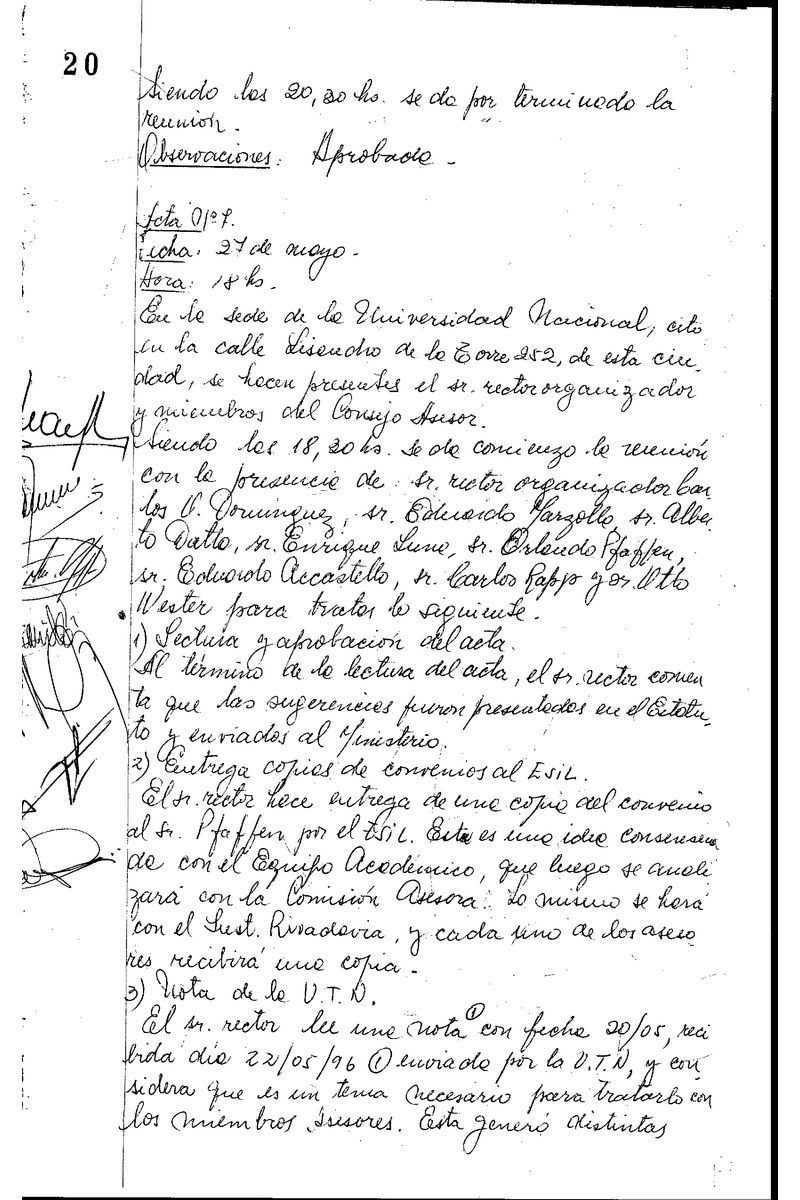 20
Siendo las 20,30 hs. se da por terminada la
reunión.
Observaciones: Aprobada -
Acta Nº 7.
Fecha: 27 de mayo.
Hora: 18 hs.
En la sede de la Universidad Nacional, cito
en la calle Lisandro de la Torre 252, de esta ciu-
dad, se hacen presentes el sr. rector organizador
y miembros del Consejo Asesor.
Siendo las 18,30 hs. se da comienzo la reunión
con la presencia de: sr. rector organizador Car
los O. Domínguez, sr. Eduardo Marzolla, sr. Alber
to Datta, sr. Enrique Luna, sr. Orlando Pfaffen,
sr. Eduardo Accastello, sr. Carlos Rapp y sr. Otto
Wester para tratar lo siguiente.
1) Lectura y aprobación del acta.
Al término de la lectura del acta, el sr. rector comen
ta que las sugerencias fueron presentadas en el Estatu-
to y enviados al Ministerio.
2) Entrega copias de convenios al ESIL.
El sr. rector hace entrega de una copia del convenio
al sr. Pfaffen por el ESIL. Esta es una idea consensua
da con el Equipo Académico, que luego se anali
zará con la Comisión Asesora. Lo mismo se hará
con el Inst. Rivadavia, y cada uno de los aseso
res recibirá una copia.
3) Nota de la U.T.N.
El sr. rector lee una nota ① con fecha 20/05, reci
bida día 22/05/96 ① enviada por la U.T.N, y con
sidera que es un tema necesario para tratarlo con
los miembros Asesores. Esta generó distintas